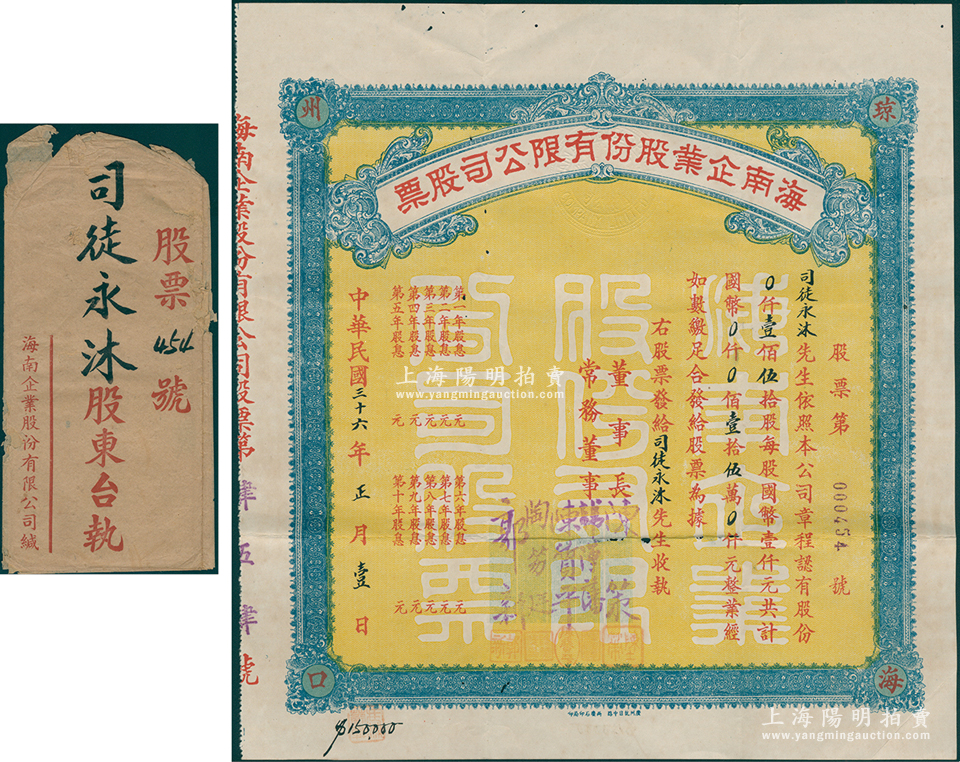 股票454號
司徒永沐股東台執
海南企業股份有限公司緘
琼
州
海南企業股份有限公司股票
股票第000454號
司徒永沐先生依照本公司章程認有股份
0仟壹佰伍拾股每股國幣壹仟元共計
國幣0仟0佰壹拾伍萬0仟元整業經
如數繳足合發給股票為據
右股票發給司徒永沐先生收執
董事長陳策
常務董事
第一年股息 元
第二年股息 元
第三年股息 元
第四年股息 元
第五年股息 元
第六年股息 元
第七年股息 元
第八年股息 元
第九年股息 元
第十年股息 元
中華民國三十六年正月壹日
海
口
海南企業股份有限公司股票第
號
海南企業
股份有限公司股票
$150,000
上海陽明拍賣
www.yangmingauction.com
上海陽明拍賣
www.yangmingauction.com